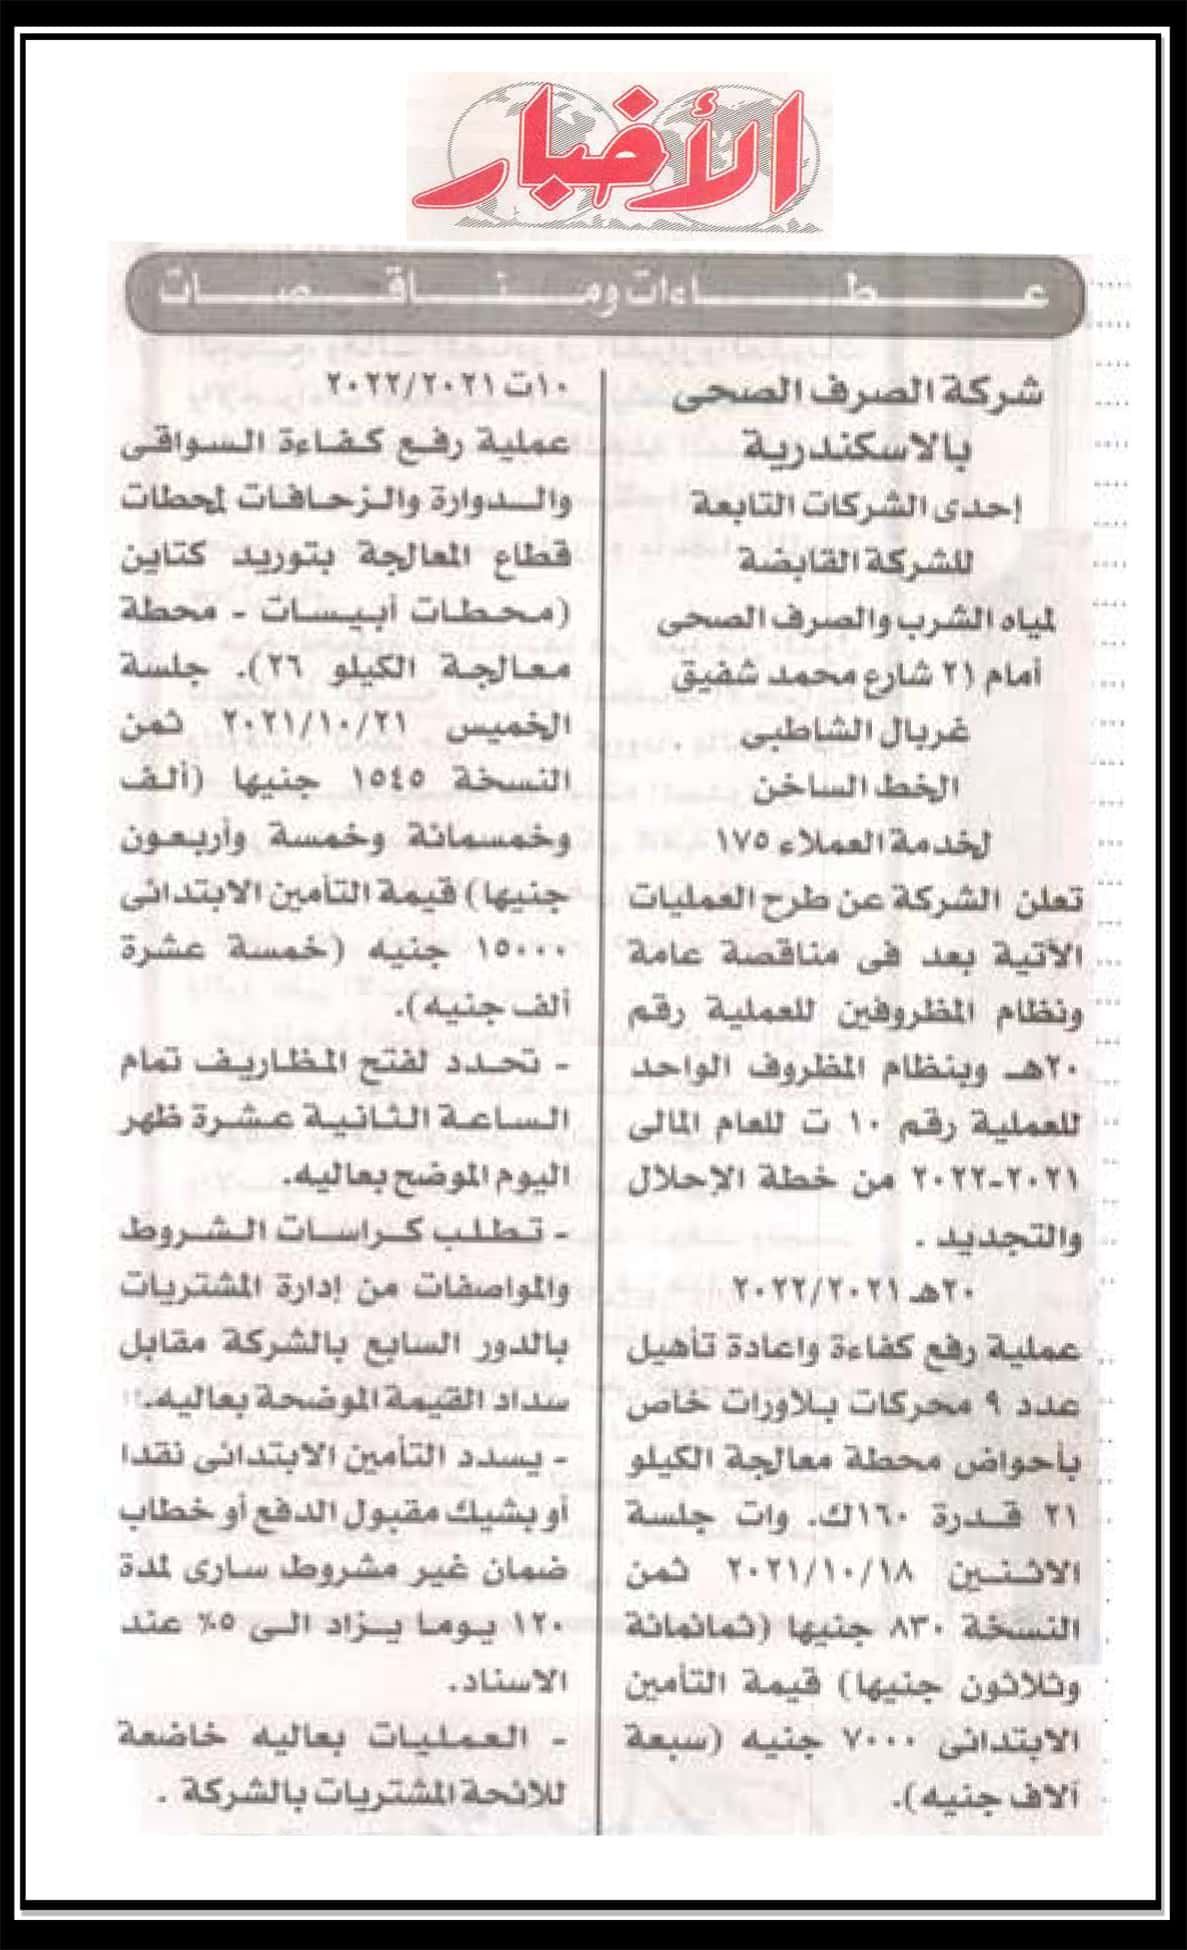 الأخبار
عطاءات ومناقصات
شركة الصرف الصحى
بالاسكندرية
إحدى الشركات التابعة
للشركة القابضة
لمياه الشرب والصرف الصحى
أمام (٢١ شارع محمد شفيق
غربال الشاطبى
الخط الساخن
لخدمة العملاء ١٧٥
تعلن الشركة عن طرح العمليات
الآتية بعد فى مناقصة عامة
ونظام المظروفين للعملية رقم
٢٠هـ وبنظام المظروف الواحد
للعملية رقم ١٠ ت للعام المالى
٢٠٢١-٢٠٢٢ من خطة الإحلال
والتجديد .
٢٠هـ ٢٠٢٢/٢٠٢١
عملية رفع كفاءة واعادة تأهيل
عدد ٩ محركات بلاورات خاص
بأحواض محطة معالجة الكيلو
٢١ قدرة ١٦٠ك. وات جلسة
الاثنين ٢٠٢١/١٠/١٨ ثمن
النسخة ٨٣٠ جنيها (ثمانمائة
وثلاثون جنيها) قيمة التأمين
الابتدائى ٧٠٠٠ جنيه (سبعة
آلاف جنيه).
١٠ت ٢٠٢٢/٢٠٢١
عملية رفع كفاءة السواقى
والدوارة والزحافات لمحطات
قطاع المعالجة بتوريد كتاين
(محطات أبيسات - محطة
معالجة الكيلو ٢٦). جلسة
الخميس ٢٠٢١/١٠/٢١ ثمن
النسخة ١٥٤٥ جنيها (ألف
وخمسمائة وخمسة وأربعون
جنيها) قيمة التأمين الابتدائى
١٥٠٠٠ جنيه (خمسة عشرة
ألف جنيه).
- تحدد لفتح المظاريف تمام
الساعة الثانية عشرة ظهر
اليوم الموضح بعاليه.
- تطلب كراسات الشروط
والمواصفات من إدارة المشتريات
بالدور السابع بالشركة مقابل
سداد القيمة الموضحة بعاليه.
- يسدد التأمين الابتدائى نقدا
أو بشيك مقبول الدفع أو خطاب
ضمان غير مشروط سارى لمدة
١٢٠ يوما يزاد الى ٥٪ عند
الاسناد.
- العمليات بعاليه خاضعة
للائحة المشتريات بالشركة .